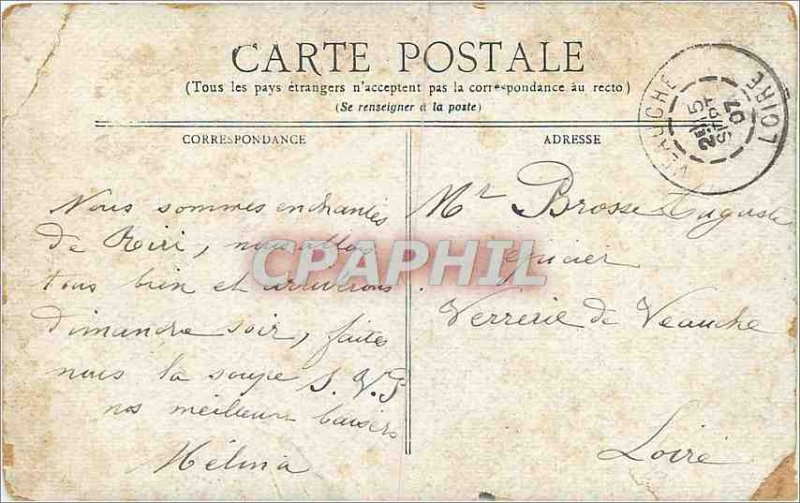 CARTE POSTALE
(Tous les pays étrangers n'acceptent pas la correspondance au recto)
(Se renseigner à la poste)
CORRESPONDANCE
Nous sommes enchantés
de Riri, nous allons
tous bien et arriverons
dimanche soir, faites
nous la soupe S.V.P
nos meilleurs baisers
Mélina
ADRESSE
Mr Brosse Auguste
épicier
Verrerie de Veauche
Loire
VEAUCHE LOIRE
2E
15
SEPT
07
CPAPHIL